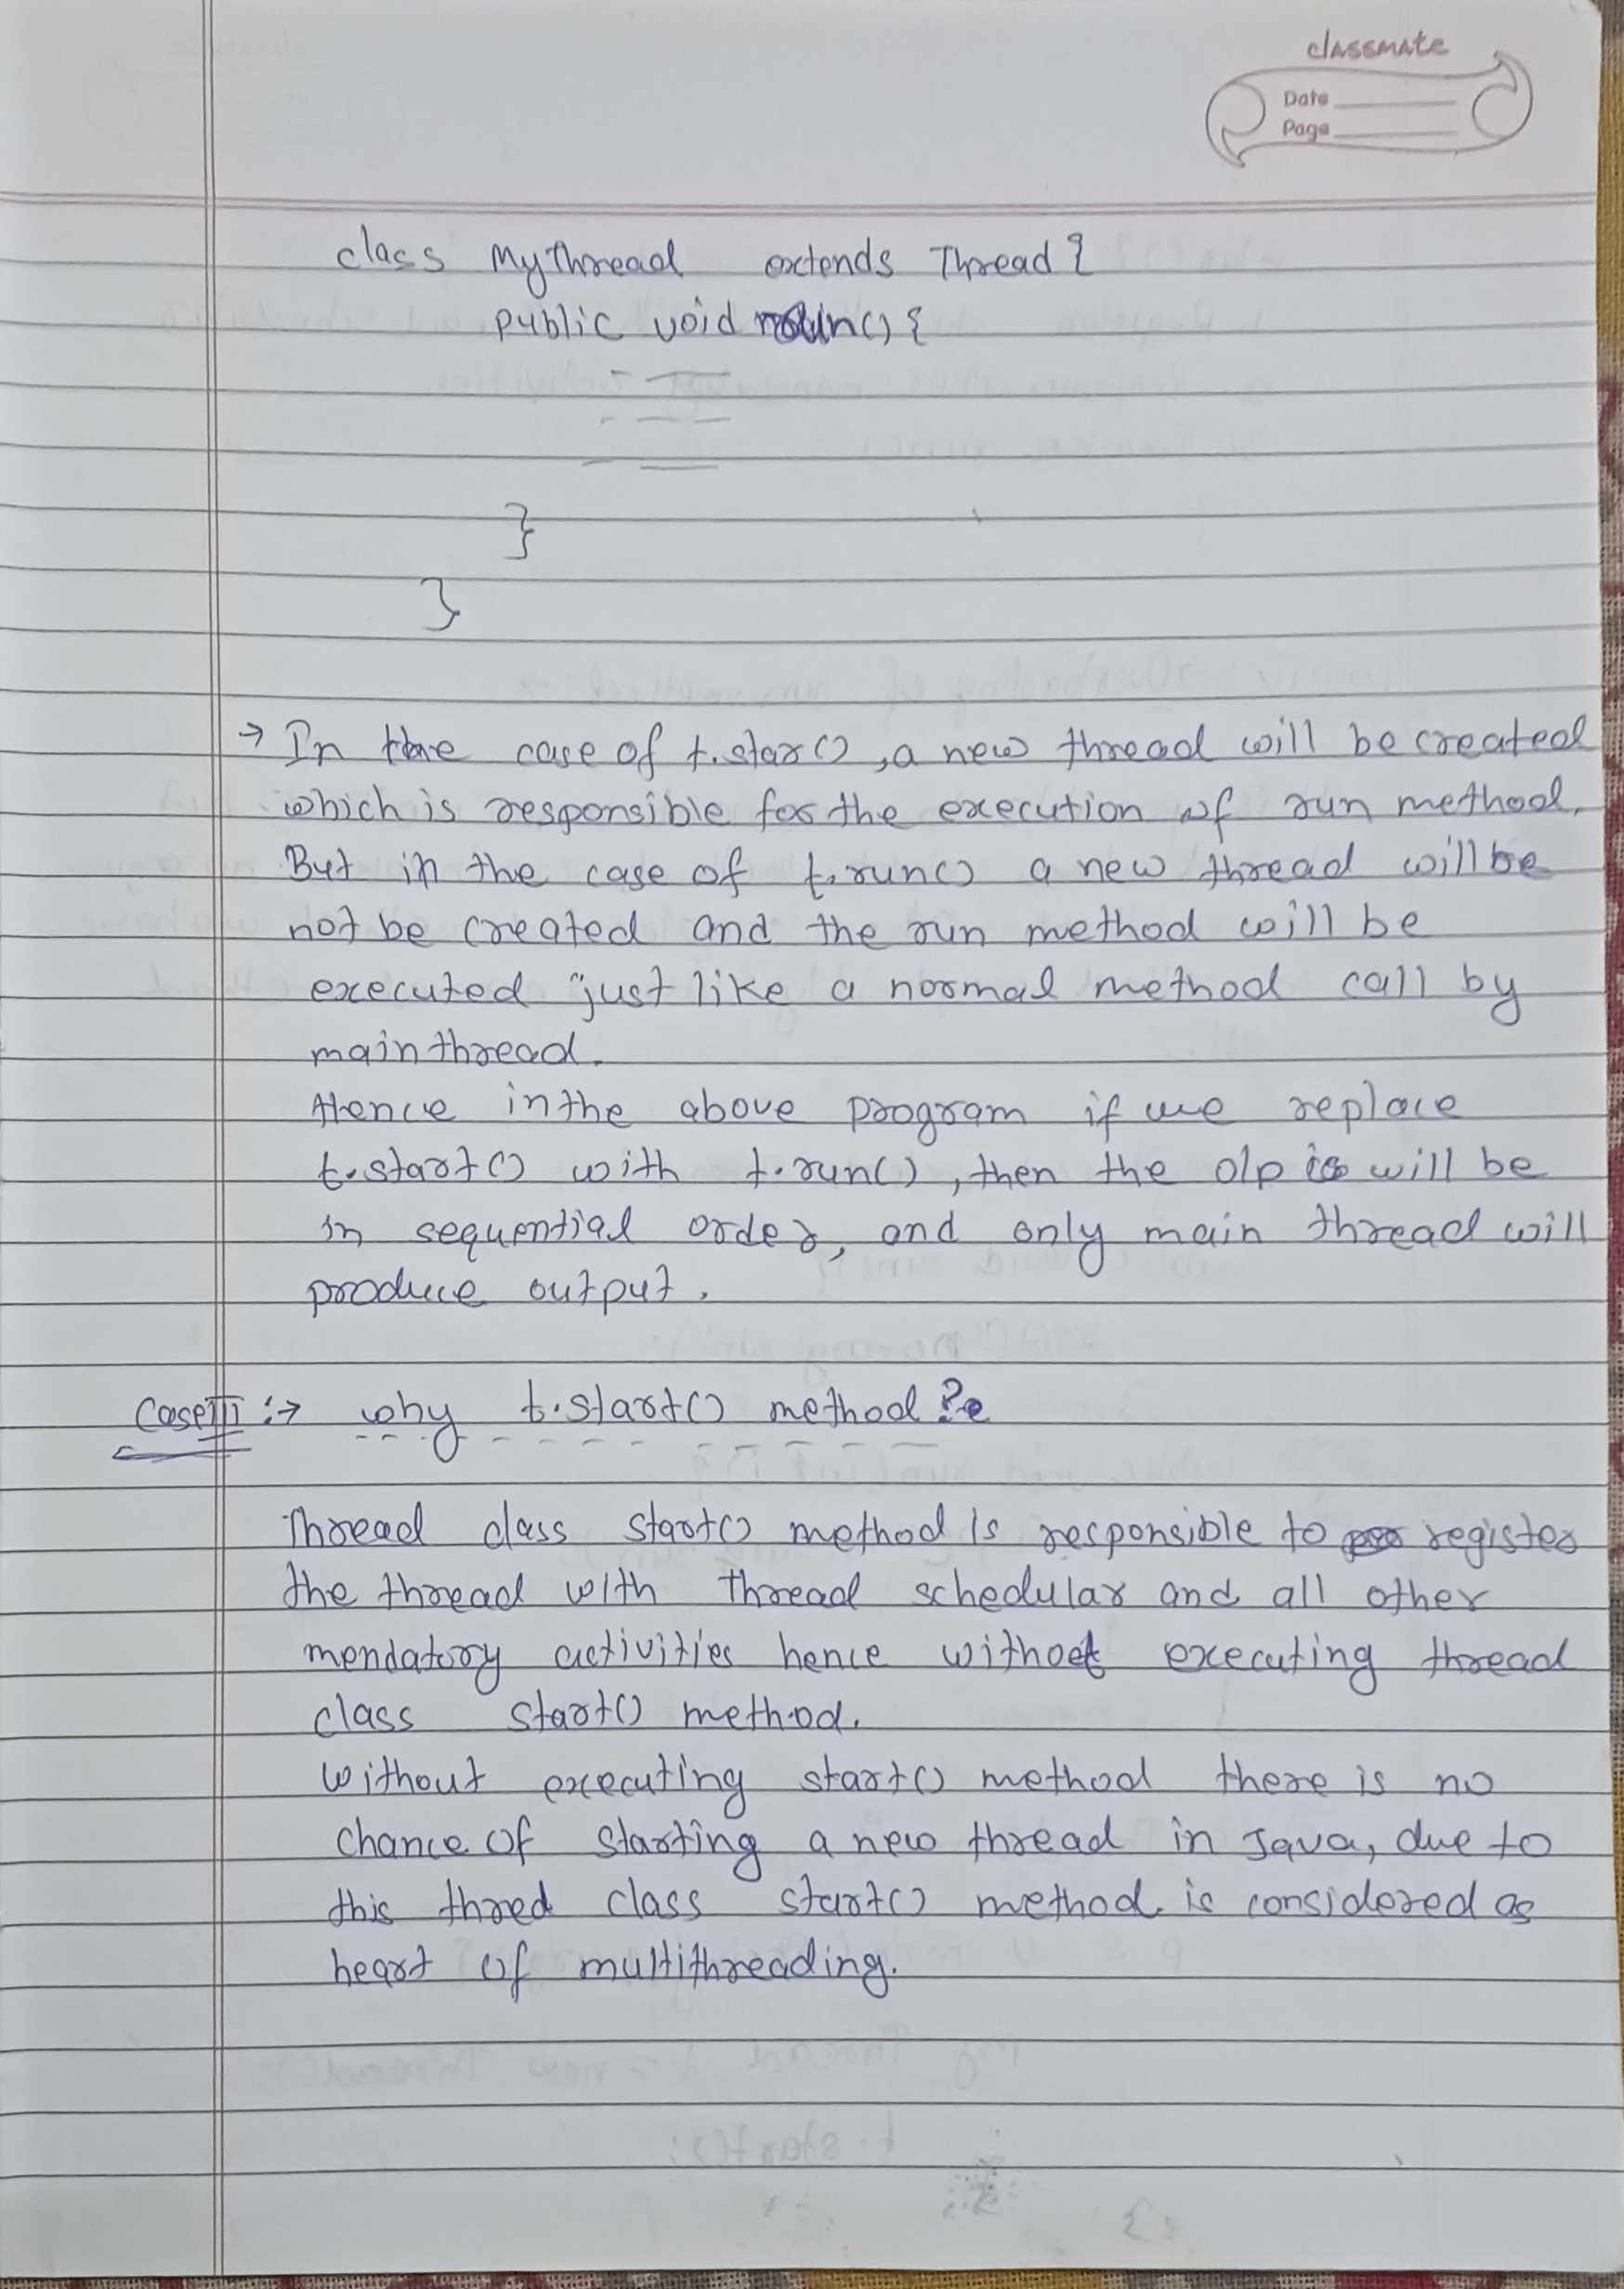 classmate
Date
Page
class MyThread extends Thread {
public void run() {
}
}
→ In the case of t.star(), a new thread will be created
which is responsible for the execution of run method.
But in the case of t.run() a new thread will be
not be created and the run method will be
executed just like a normal method call by
main thread.
Hence in the above program if we replace
t.start() with t.run(), then the o/p is will be
in sequential order, and only main thread will
produce output.
Case III :→ why t.start() method ?
Thread class start() method is responsible to register
the thread with thread schedular and all other
mendatory activities hence without executing thread
class start() method.
without executing start() method there is no
chance of starting a new thread in Java, due to
this thred class start() method is considered as
heart of multithreading.